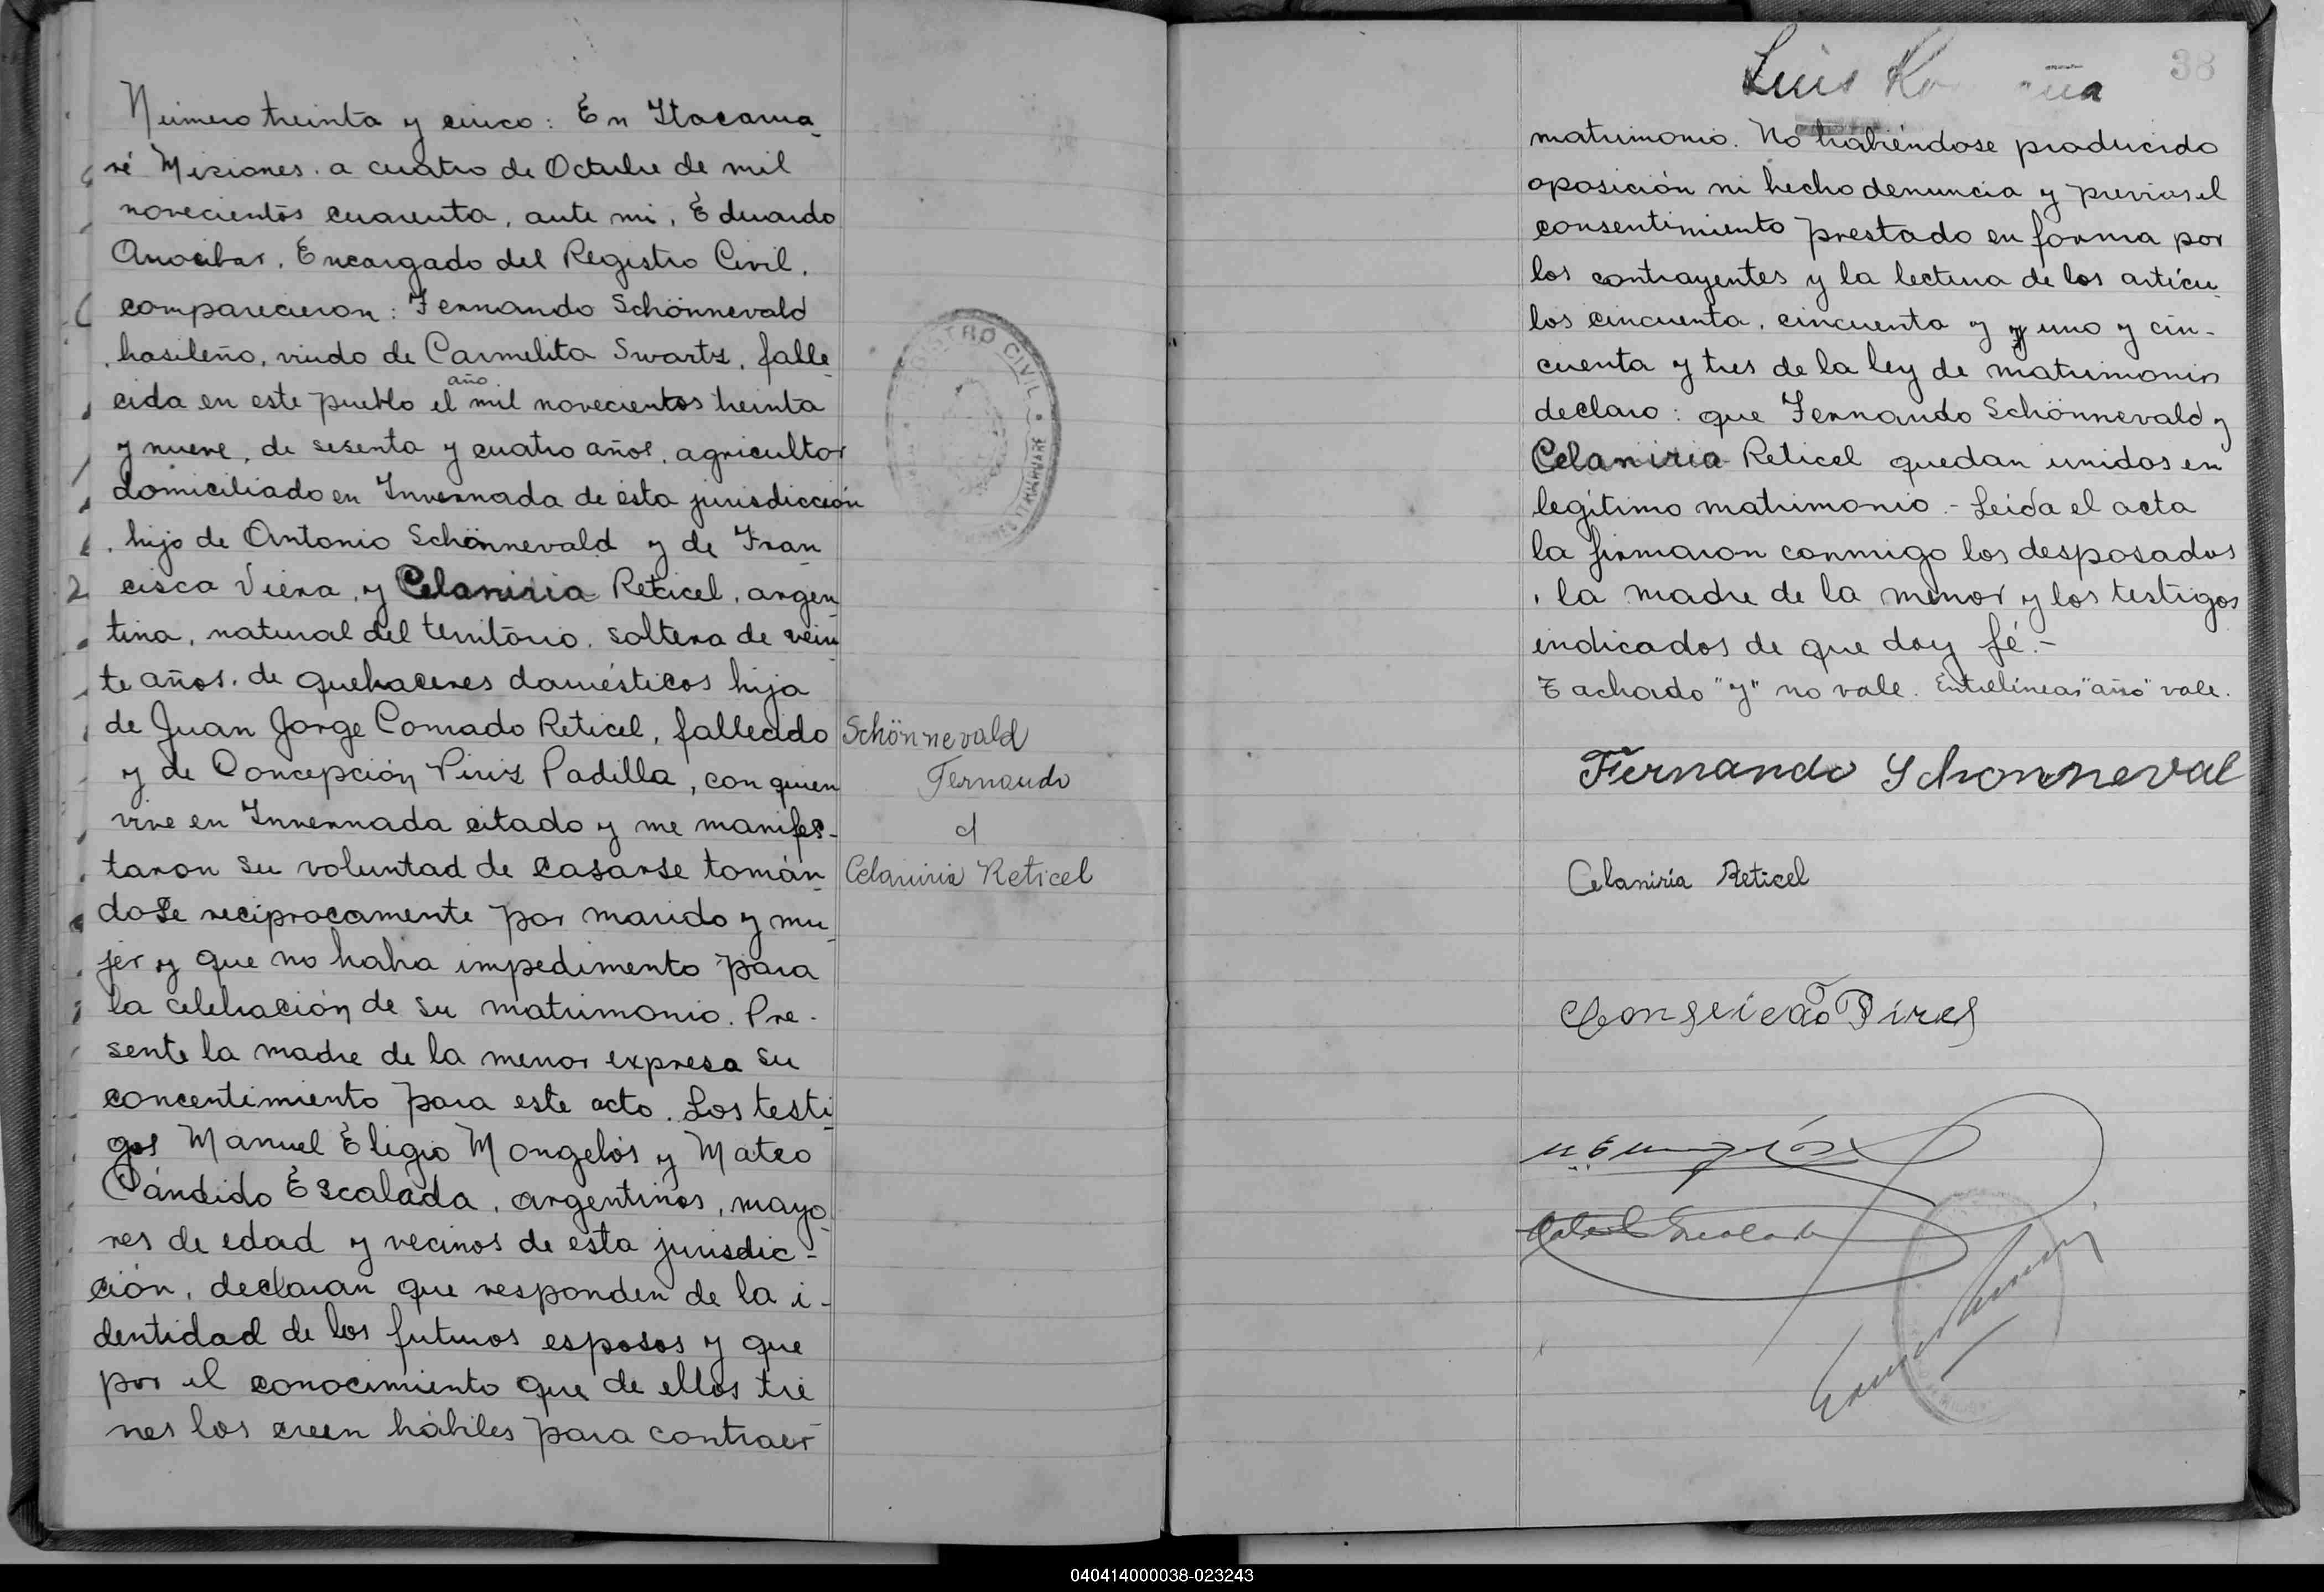 Número treinta y cinco: En Itacarua-
ré Misiones. a cuatro de Octubre de mil
novecientos cuarenta, ante mi, Eduardo
Anocibar, Encargado del Registro Civil,
comparecieron: Fernando Schönnevald
brasileño, viudo de Carmelita Swartz, falle-
cida en este pueblo el año mil novecientos treinta
y nueve, de sesenta y cuatro años, agricultor
domiciliado en Invernada de ésta jurisdicción
, hijo de Antonio Schönnevald y de Fran-
cisca Viera, y Celaniria Reticel, argen-
tina, natural del território, soltera de vein-
te años, de quehaceres domésticos hija
de Juan Jorge Conrado Reticel, fallecido
y de Concepción Piriz Padilla, con quien
vive en Invernada citado y me manifes-
taron su voluntad de casarse tomán-
dose reciprocamente por marido y mu-
jer y que no había impedimento para
la celebración de su matrimonio. Pre-
sente la madre de la menor expresa su
concentimiento para este acto. Los testi-
gos Manuel Eligio Mongelós y Mateo
Cándido Escalada, argentinos, mayo-
res de edad y vecinos de esta jurisdic-
ción, declaran que responden de la i-
dentidad de los futuros esposos y que
por el conocimiento que de ellos tie-
nes los creen hábiles para contraer
REGISTRO CIVIL
Schönnevald
Fernando
c/
Celaniria Reticel
38
Luis
matrimonio. No habiéndose producido
oposición ni hecho denuncia y previos el
consentimiento prestado en forma por
los contrayentes y la lectura de los artícu-
los cincuenta, cincuenta y y uno y cin-
cuenta y tres de la ley de matrimonio
declaro: que Fernando Schönnevald y
Celaniria Reticel quedan unidos en
legítimo matrimonio.- Leída el acta
la firmaron conmigo los desposados
, la madre de la menor y los testigos
indicados de que doy fé.-
Tachado "y" no vale. Entrelíneas "año" vale.
Fernando Schonneval
Celaniria Reticel
Conseicão Pires
040414000038-023243